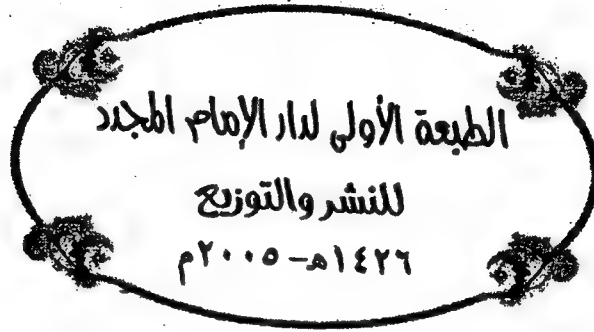 الطبعة الأولى لدار الإمام المجدد
للنشر والتوزيع
١٤٢٦هـ-٢٠٠٥م